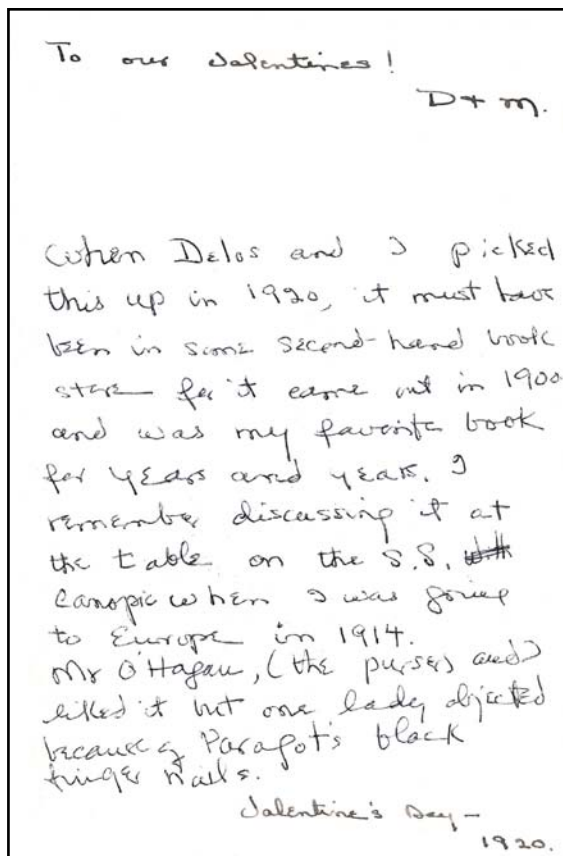 To our Valentines!
D + M.
When Delos and I picked
this up in 1920, it must have
been in some second-hand book
store for it came out in 1900
and was my favorite book
for years and years. I
remember discussing it at
the table on the S.S.
Canopic when I was going
to Europe in 1914.
Mr O'Hagan, (the purser) and I
liked it but one lady objected
because of Paragot's black
finger nails.
Valentine's Day—
1920.